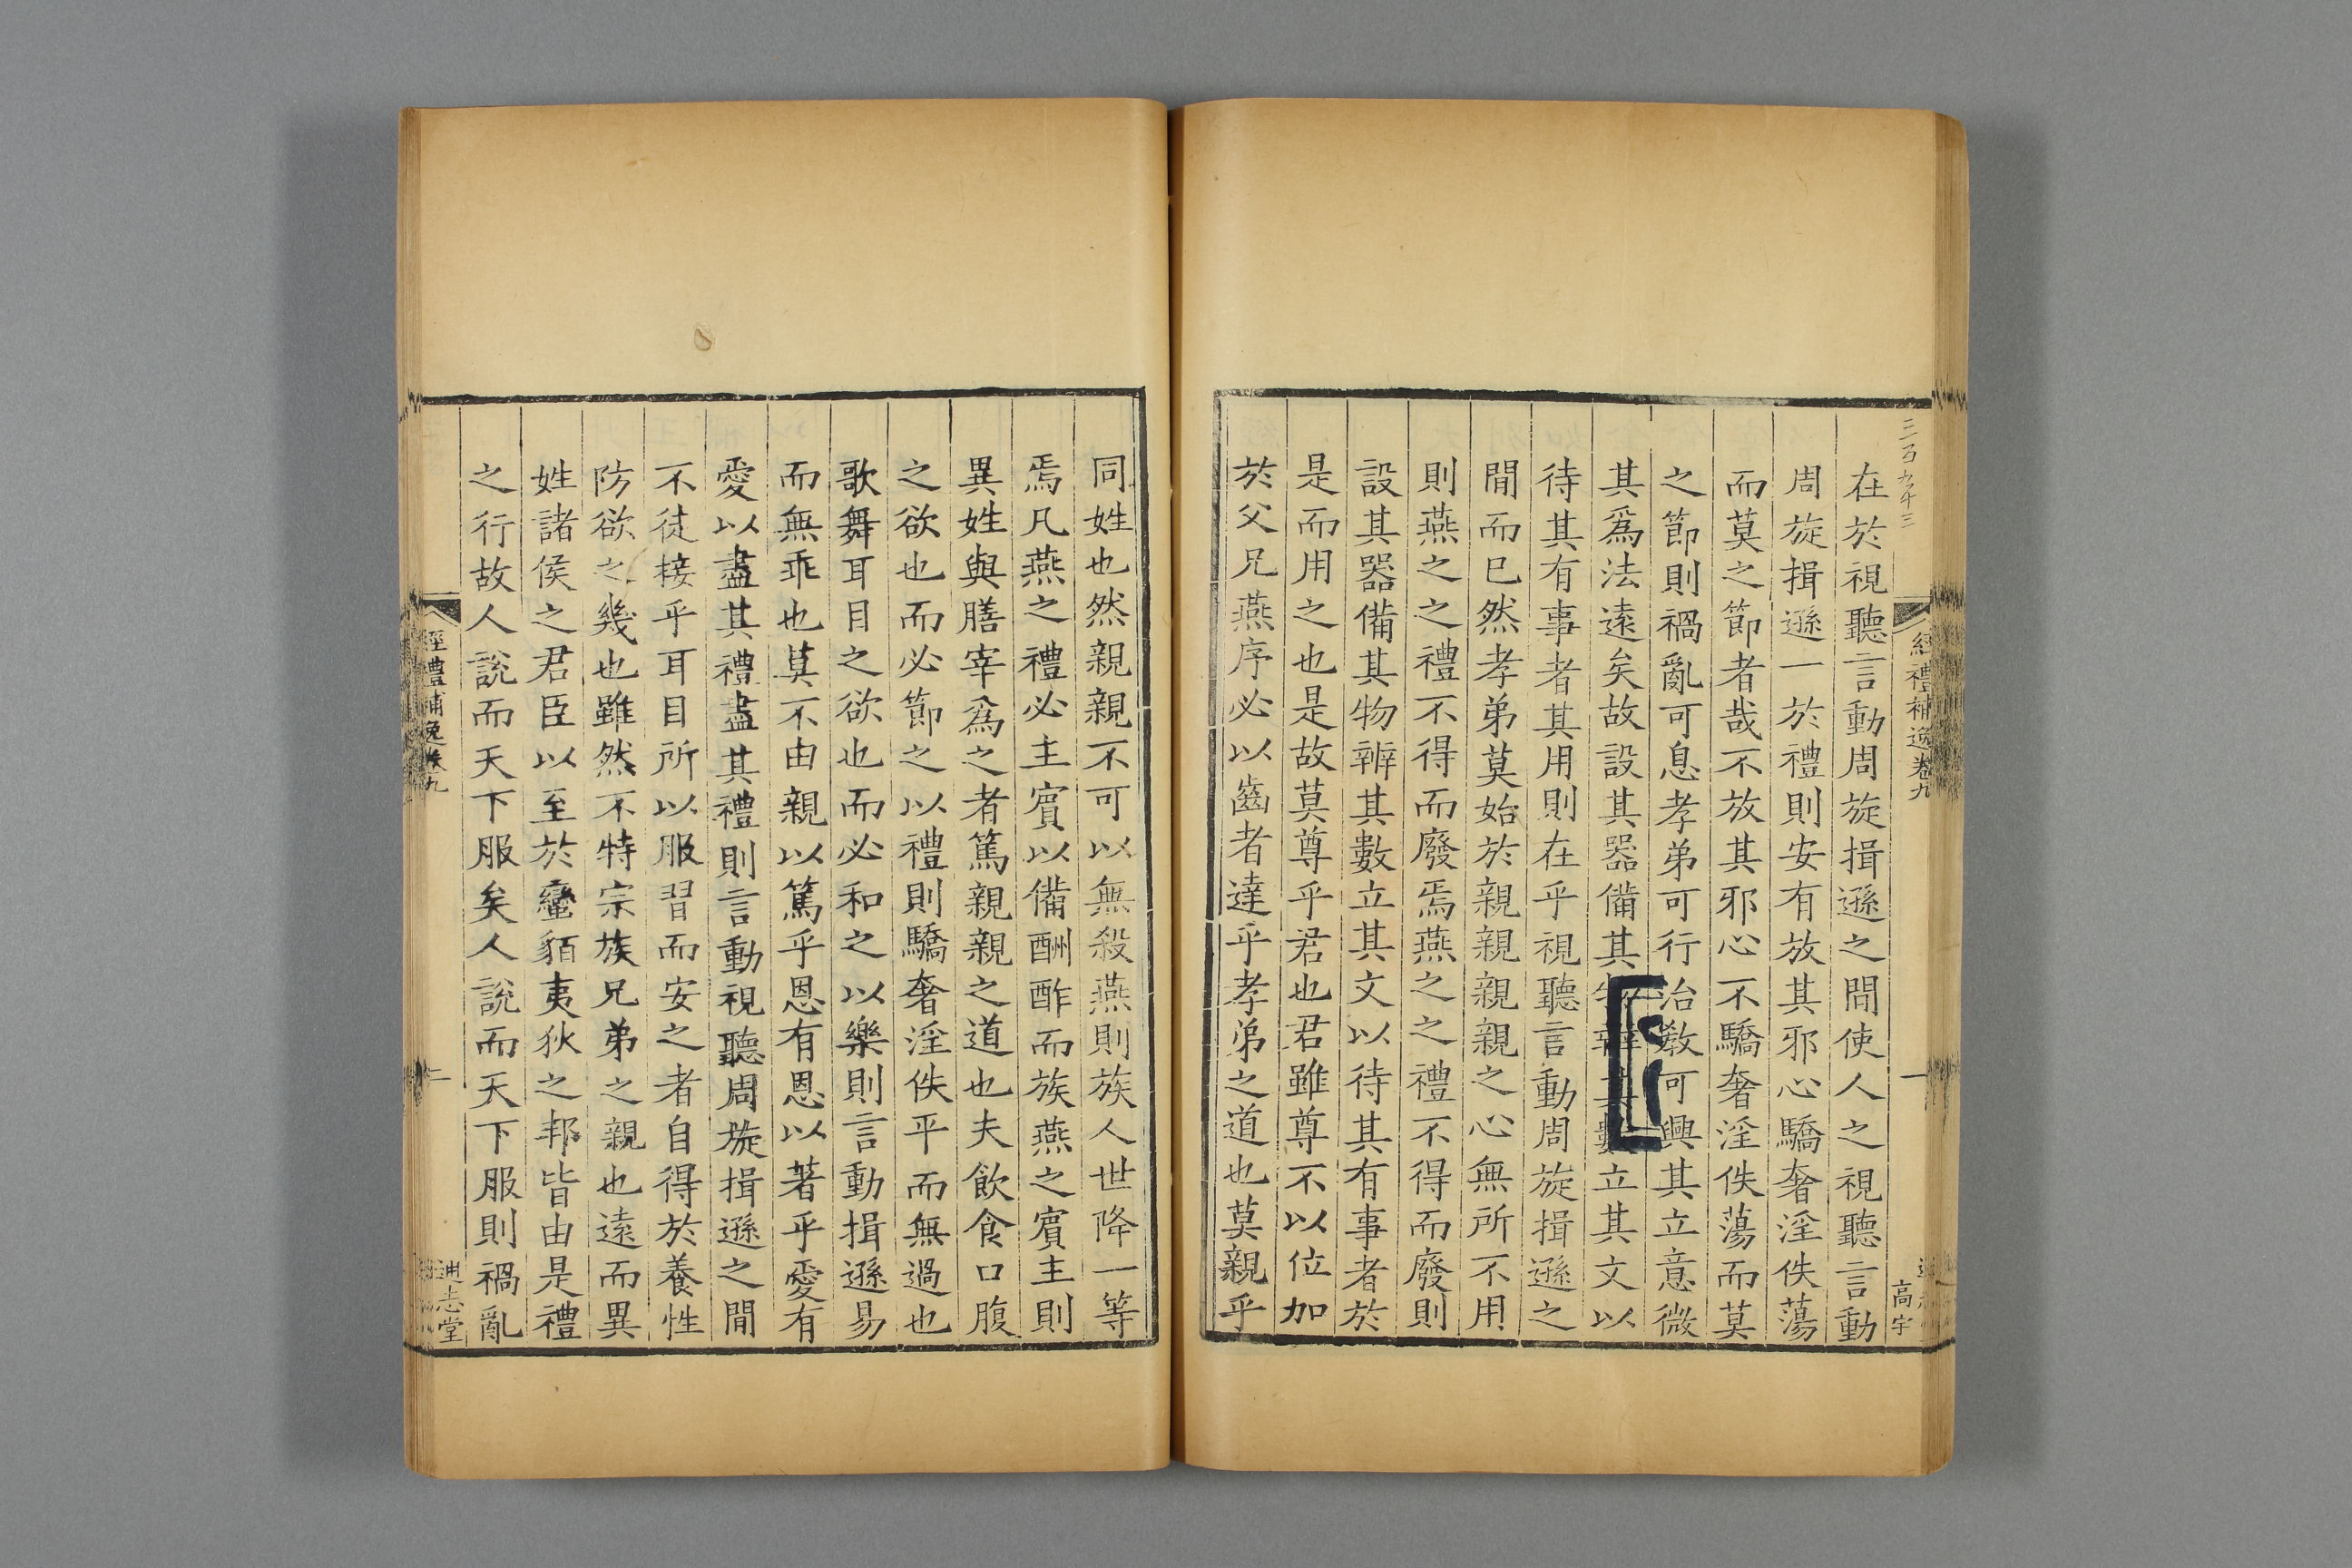 三百九十三
經禮補逸卷九
一
高宇
在於視聽言動周旋揖遜之間使人之視聽言動
周旋揖遜一於禮則安有放其邪心驕奢淫佚蕩
而莫之節者哉不放其邪心不驕奢淫佚蕩而莫
之節則禍亂可息孝弟可行治敎可興其立意微
其爲法遠矣故設其器備其物辨其數立其文以
待其有事者其用則在乎視聽言動周旋揖遜之
間而已然孝弟莫始於親親親親之心無所不用
則燕之之禮不得而廢焉燕之之禮不得而廢則
設其器備其物辨其數立其文以待其有事者於
是而用之也是故莫尊乎君也君雖尊不以位加
於父兄燕序必以齒者達乎孝弟之道也莫親乎
同姓也然親親不可以無殺燕則族人世降一等
焉凡燕之禮必主賓以備酬酢而族燕之賓主則
異姓與膳宰爲之者篤親親之道也夫飲食口腹
之欲也而必節之以禮則驕奢淫佚平而無過也
歌舞耳目之欲也而必和之以樂則言動揖遜易
而無乖也莫不由親以篤乎恩有恩以著乎愛有
愛以盡其禮盡其禮則言動視聽周旋揖遜之間
不徒接乎耳目所以服習而安之者自得於養性
防欲之幾也雖然不特宗族兄弟之親也遠而異
姓諸侯之君臣以至於蠻貊夷狄之邦皆由是禮
之行故人說而天下服矣人說而天下服則禍亂
經禮補逸卷九
二
通志堂